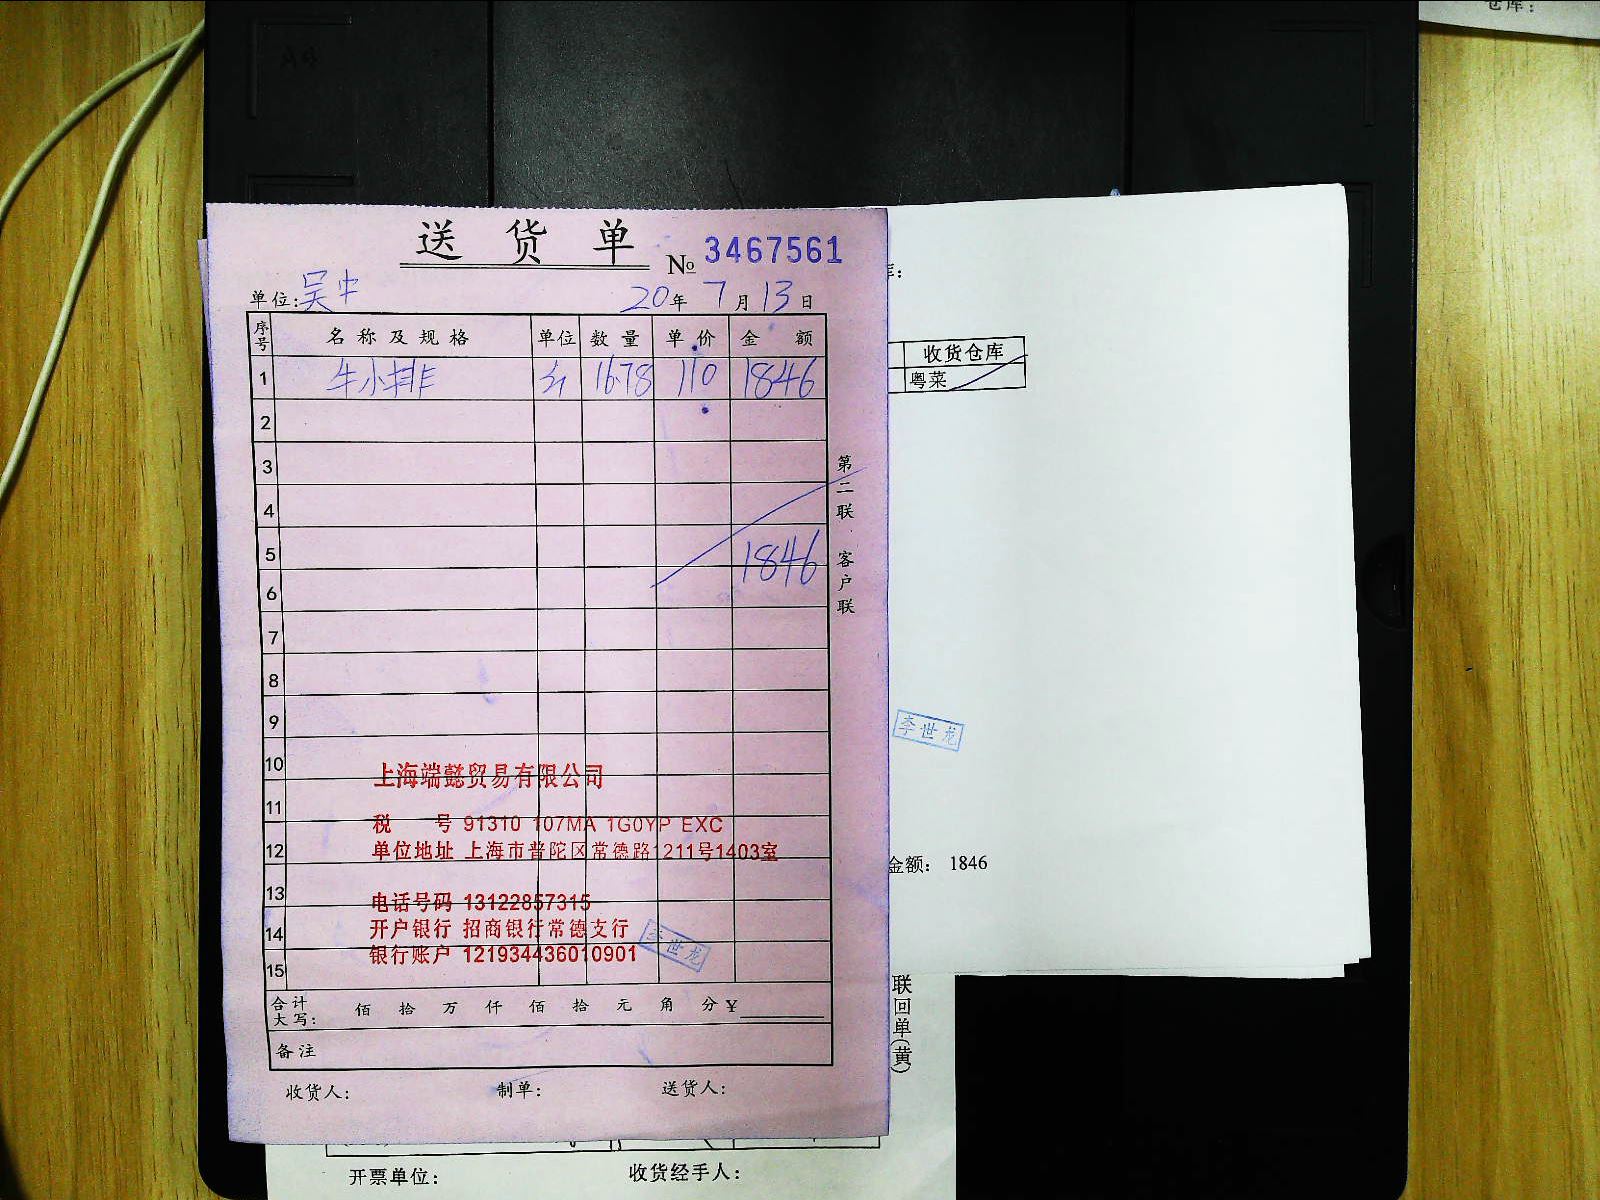 仓库：
送货单
№ 3467561
单位：吴中 20年7月13日
序号 名称及规格 单位 数量 单价 金额
1 牛小排 斤 16.78 110 1846
2
3
4
5
1846
6
7
8
9
10
11
12
13
14
15
第二联 客户联
上海端懿贸易有限公司
税 号 91310 107MA 1G0YP EXC
单位地址 上海市普陀区常德路1211号1403室
电话号码 13122857315
开户银行 招商银行常德支行
银行账户 121934436010901
李世龙
合计大写： 佰 拾 万 仟 佰 拾 元 角 分 ¥
备注
收货人： 制单： 送货人：
库：
收货仓库
粤菜
李世龙
金额： 1846
联回单(黄)
开票单位： 收货经手人：